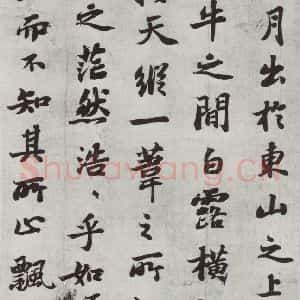 月出於東山之上
牛之間白露橫
天縱一葦之所
之茫然浩〻乎如
而不知其所止飄
Shufawang.CN